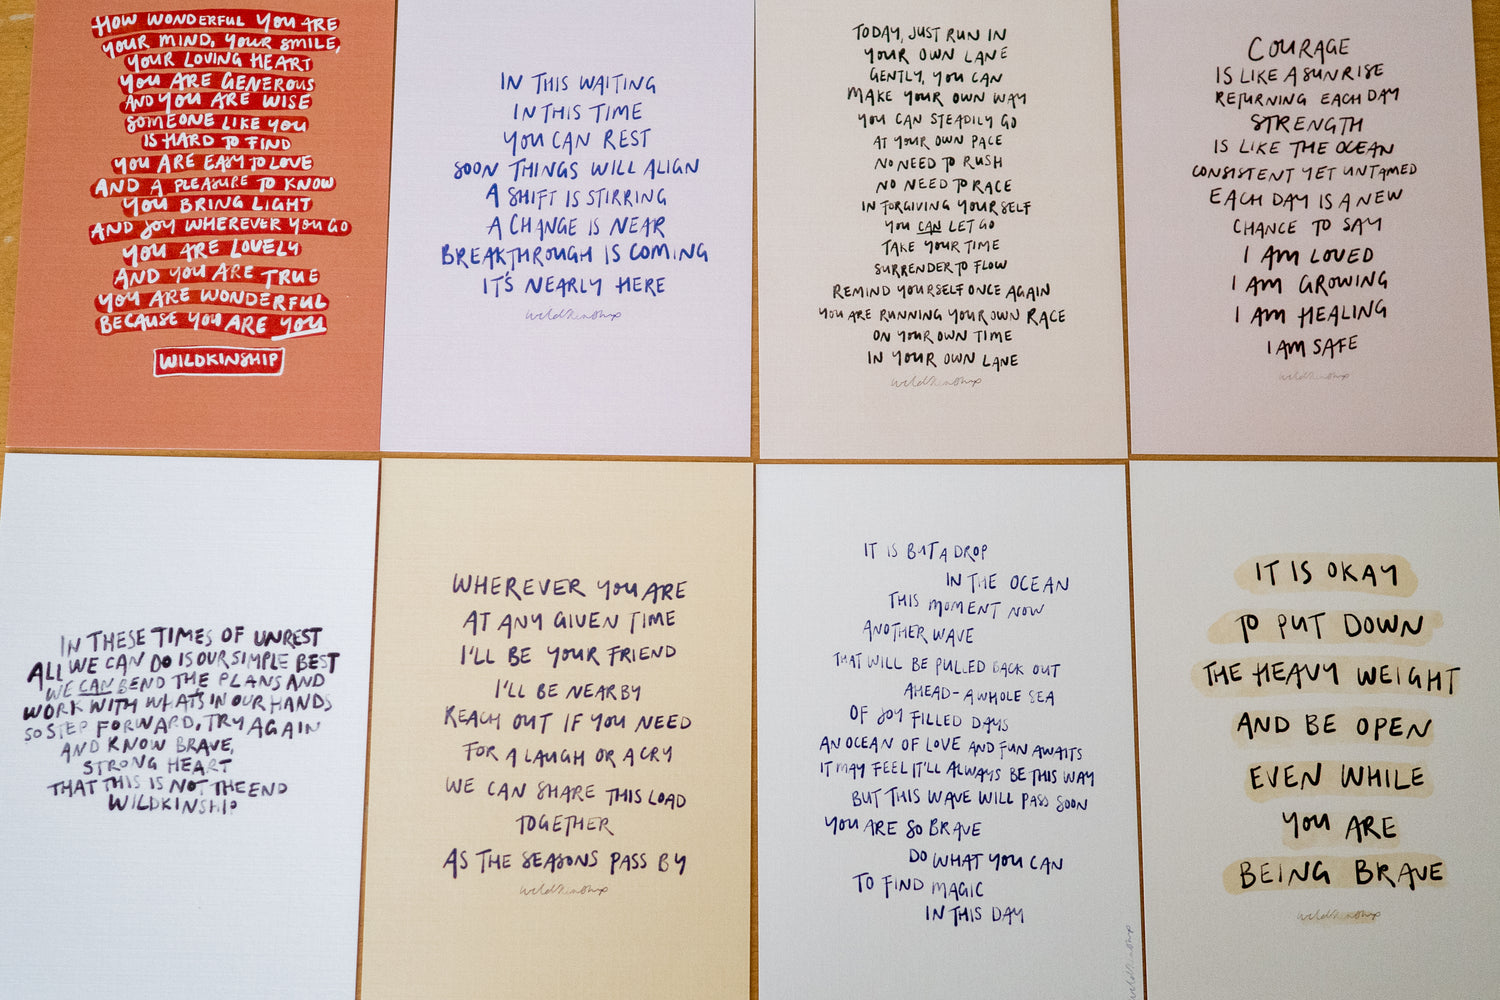 HOW WONDERFUL YOU ARE
YOUR MIND, YOUR SMILE,
YOUR LOVING HEART
YOU ARE GENEROUS
AND YOU ARE WISE
SOMEONE LIKE YOU
IS HARD TO FIND
YOU ARE EASY TO LOVE
AND A PLEASURE TO KNOW
YOU BRING LIGHT
AND JOY WHEREVER YOU GO
YOU ARE LOVELY
AND YOU ARE TRUE
YOU ARE WONDERFUL
BECAUSE YOU ARE YOU
WILDKINSHIP
IN THIS WAITING
IN THIS TIME
YOU CAN REST
SOON THINGS WILL ALIGN
A SHIFT IS STIRRING
A CHANGE IS NEAR
BREAKTHROUGH IS COMING
IT'S NEARLY HERE
wildkinship
TODAY, JUST RUN IN
YOUR OWN LANE
GENTLY, YOU CAN
MAKE YOUR OWN WAY
YOU CAN STEADILY GO
AT YOUR OWN PACE
NO NEED TO RUSH
NO NEED TO RACE
IN FORGIVING YOURSELF
YOU CAN LET GO
TAKE YOUR TIME
SURRENDER TO FLOW
REMIND YOURSELF ONCE AGAIN
YOU ARE RUNNING YOUR OWN RACE
ON YOUR OWN TIME
IN YOUR OWN LANE
wildkinship
COURAGE
IS LIKE A SUNRISE
RETURNING EACH DAY
STRENGTH
IS LIKE THE OCEAN
CONSISTENT YET UNTAMED
EACH DAY IS A NEW
CHANCE TO SAY
I AM LOVED
I AM GROWING
I AM HEALING
I AM SAFE
wildkinship
IN THESE TIMES OF UNREST
ALL WE CAN DO IS OUR SIMPLE BEST
WE CAN BEND THE PLANS AND
WORK WITH WHAT'S IN OUR HANDS
SO STEP FORWARD, TRY AGAIN
AND KNOW BRAVE,
STRONG HEART
THAT THIS IS NOT THE END
WILDKINSHIP
WHEREVER YOU ARE
AT ANY GIVEN TIME
I'LL BE YOUR FRIEND
I'LL BE NEARBY
REACH OUT IF YOU NEED
FOR A LAUGH OR A CRY
WE CAN SHARE THIS LOAD
TOGETHER
AS THE SEASONS PASS BY
wildkinship
IT IS BUT A DROP
IN THE OCEAN
THIS MOMENT NOW
ANOTHER WAVE
THAT WILL BE PULLED BACK OUT
AHEAD - A WHOLE SEA
OF JOY FILLED DAYS
AN OCEAN OF LOVE AND FUN AWAITS
IT MAY FEEL IT'LL ALWAYS BE THIS WAY
BUT THIS WAVE WILL PASS SOON
YOU ARE SO BRAVE
DO WHAT YOU CAN
TO FIND MAGIC
IN THIS DAY
wildkinship
IT IS OKAY
TO PUT DOWN
THE HEAVY WEIGHT
AND BE OPEN
EVEN WHILE
YOU ARE
BEING BRAVE
wildkinship